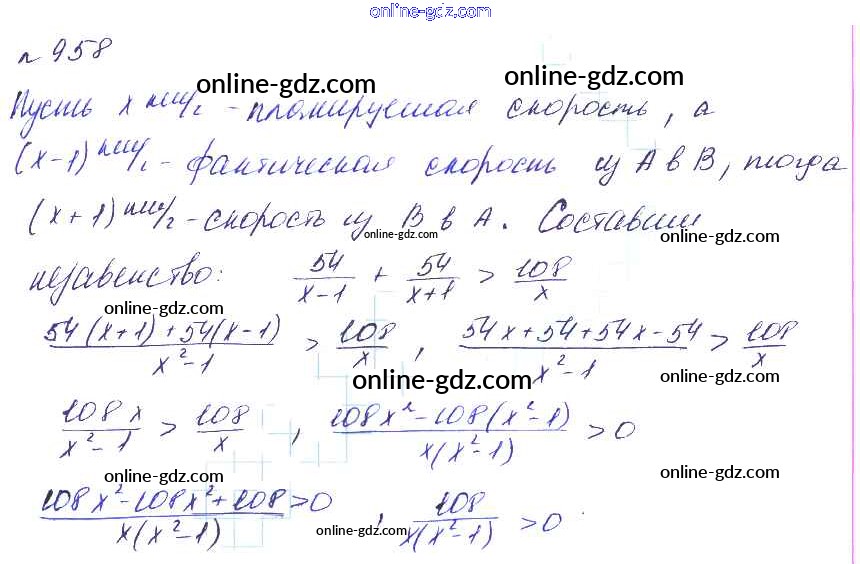 online-gdz.com
n 958
online-gdz.com online-gdz.com
Пусть x км/ч - планируемая скорость, а
(x-1) км/ч - фактическая скорость из А в В, тогда
(x+1) км/ч - скорость из В в А. Составим
online-gdz.com online-gdz.com
неравенство: 54/(x-1) + 54/(x+1) > 108/x
online-gdz.com
(54(x+1)+54(x-1))/(x²-1) > 108/x , (54x+54+54x-54)/(x²-1) > 108/x
online-gdz.com online-gdz.com
108x/(x²-1) > 108/x , (108x²-108(x²-1))/(x(x²-1)) > 0
online-gdz.com online-gdz.com
(108x²-108x²+108)/(x(x²-1)) > 0 , 108/(x(x²-1)) > 0
online-gdz.com online-gdz.com